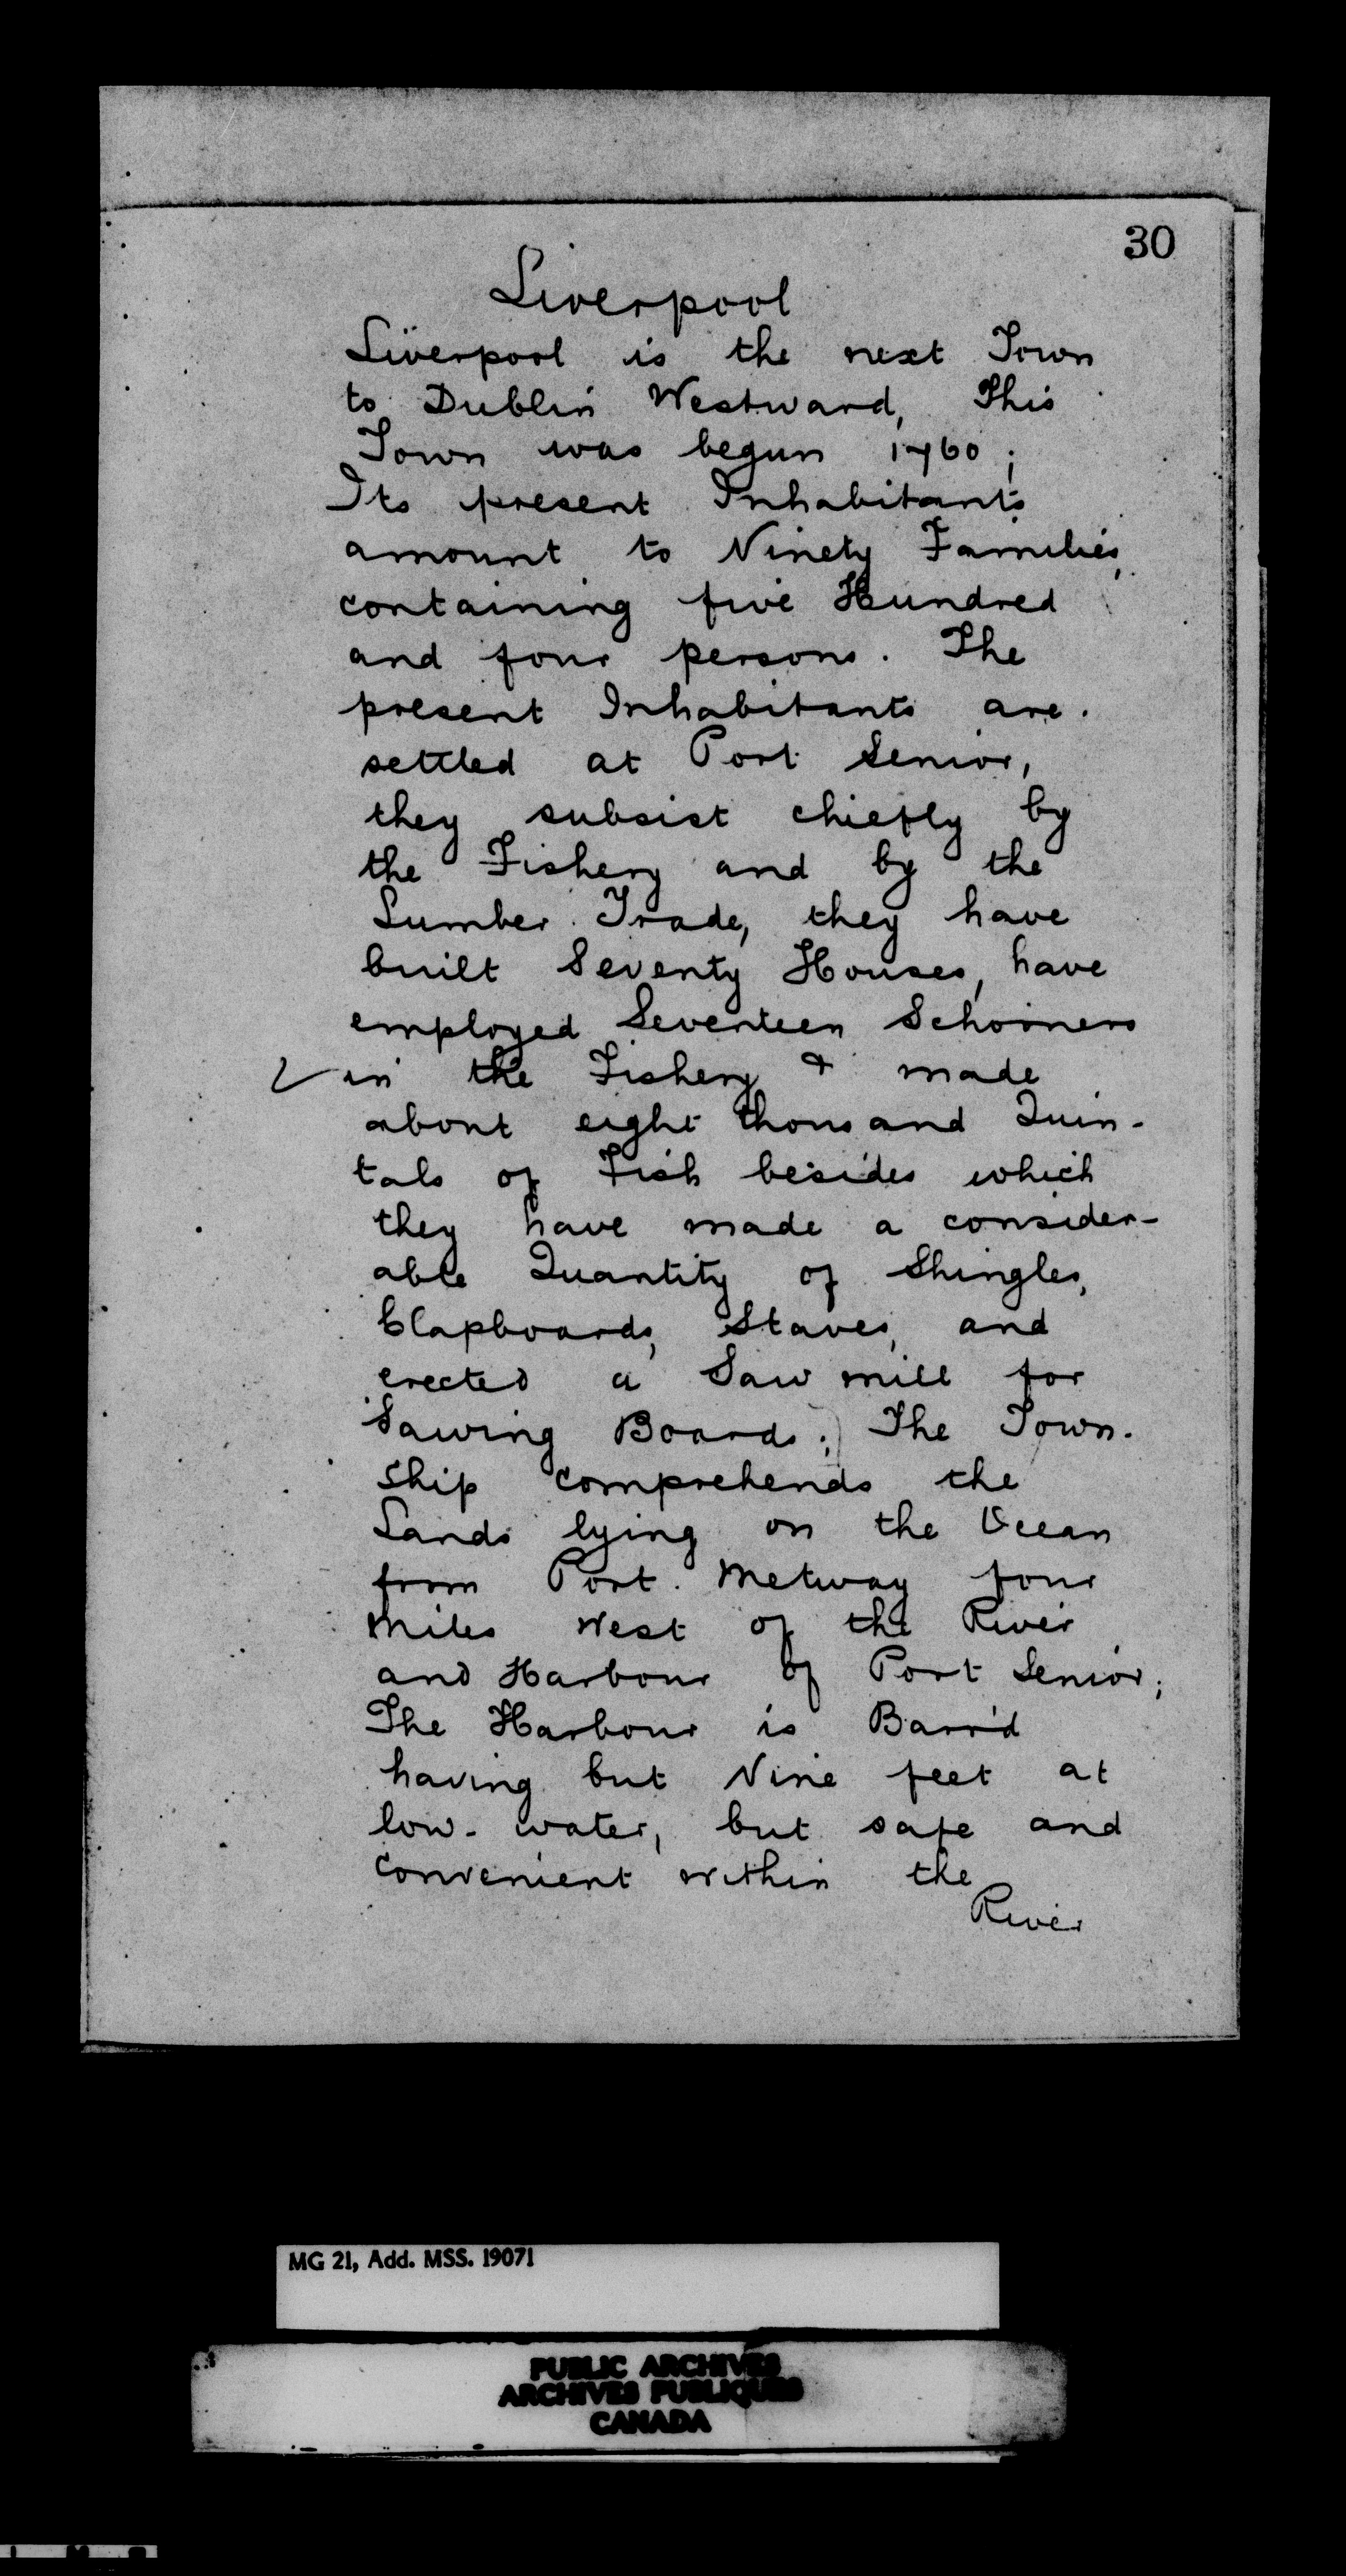 30
Liverpool
Liverpool is the next Town
to Dublin Westward, This
Town was begun 1760;
Its present Inhabitants
amount to Ninety Families,
containing five Hundred
and four persons. The
present Inhabitants are
settled at Port Senior,
they subsist chiefly by
the Fishery and by the
Lumber Trade, they have
built Seventy Houses, have
employed Seventeen Schooners
in the Fishery & made
about eight thousand Quin-
tals of Fish besides which
they have made a consider-
able Quantity of Shingles,
Clapboards, Staves, and
erected a Saw mill for
Sawing Boards; The Town-
ship comprehends the
Lands lying on the Ocean
from Port Metway four
Miles West of the River
and Harbour of Port Senior;
The Harbour is Barr'd
having but Nine feet at
low-water, but safe and
convenient within the
River
MG 21, Add. MSS. 19071
PUBLIC ARCHIVES
ARCHIVES PUBLIQUES
CANADA